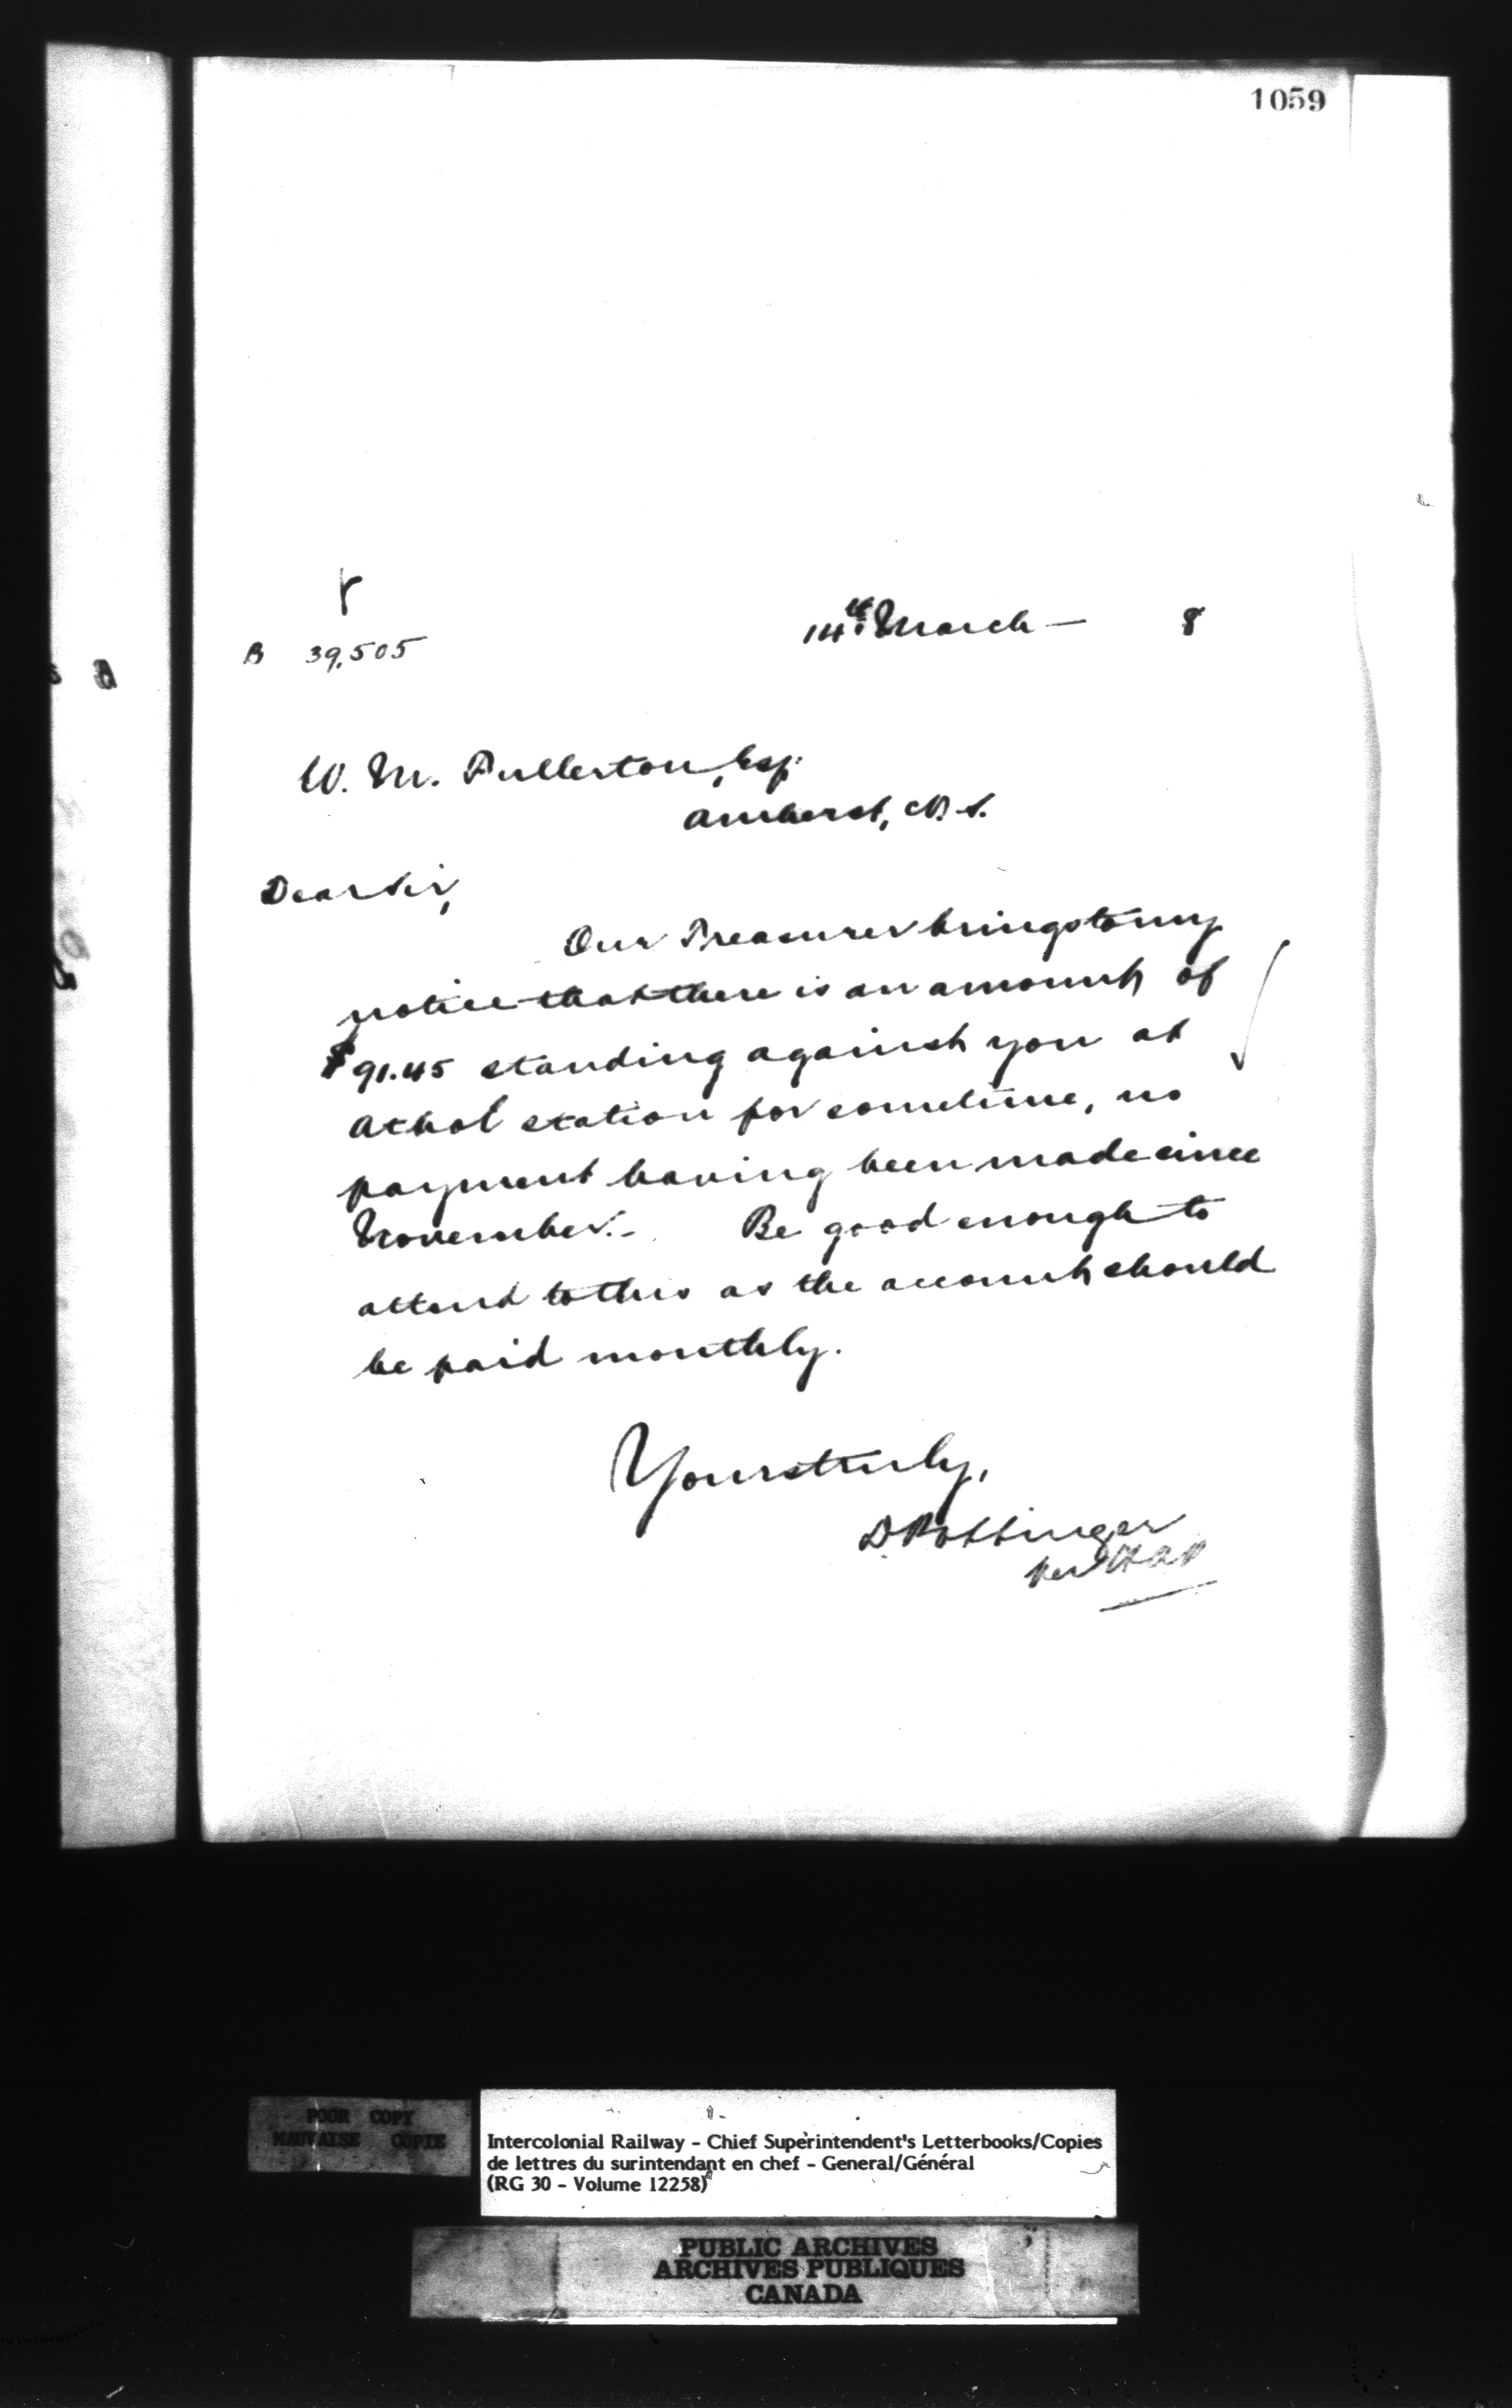 1059
14th March — 8
B 39,505
W. M. Fullerton, Esq.
Amherst, N. S.
Dear Sir,
Our Treasurer brings to my
notice that there is an amount of
$91.45 standing against you at
Athol station for sometime, no
payment having been made since
November. - Be good enough to
attend to this as the account should
be paid monthly.
Yours truly,
D. Pottinger
per
POOR COPY
MAUVAISE COPIE
Intercolonial Railway - Chief Superintendent's Letterbooks/Copies
de lettres du surintendant en chef - General/Général
(RG 30 - Volume 12258)
PUBLIC ARCHIVES
ARCHIVES PUBLIQUES
CANADA